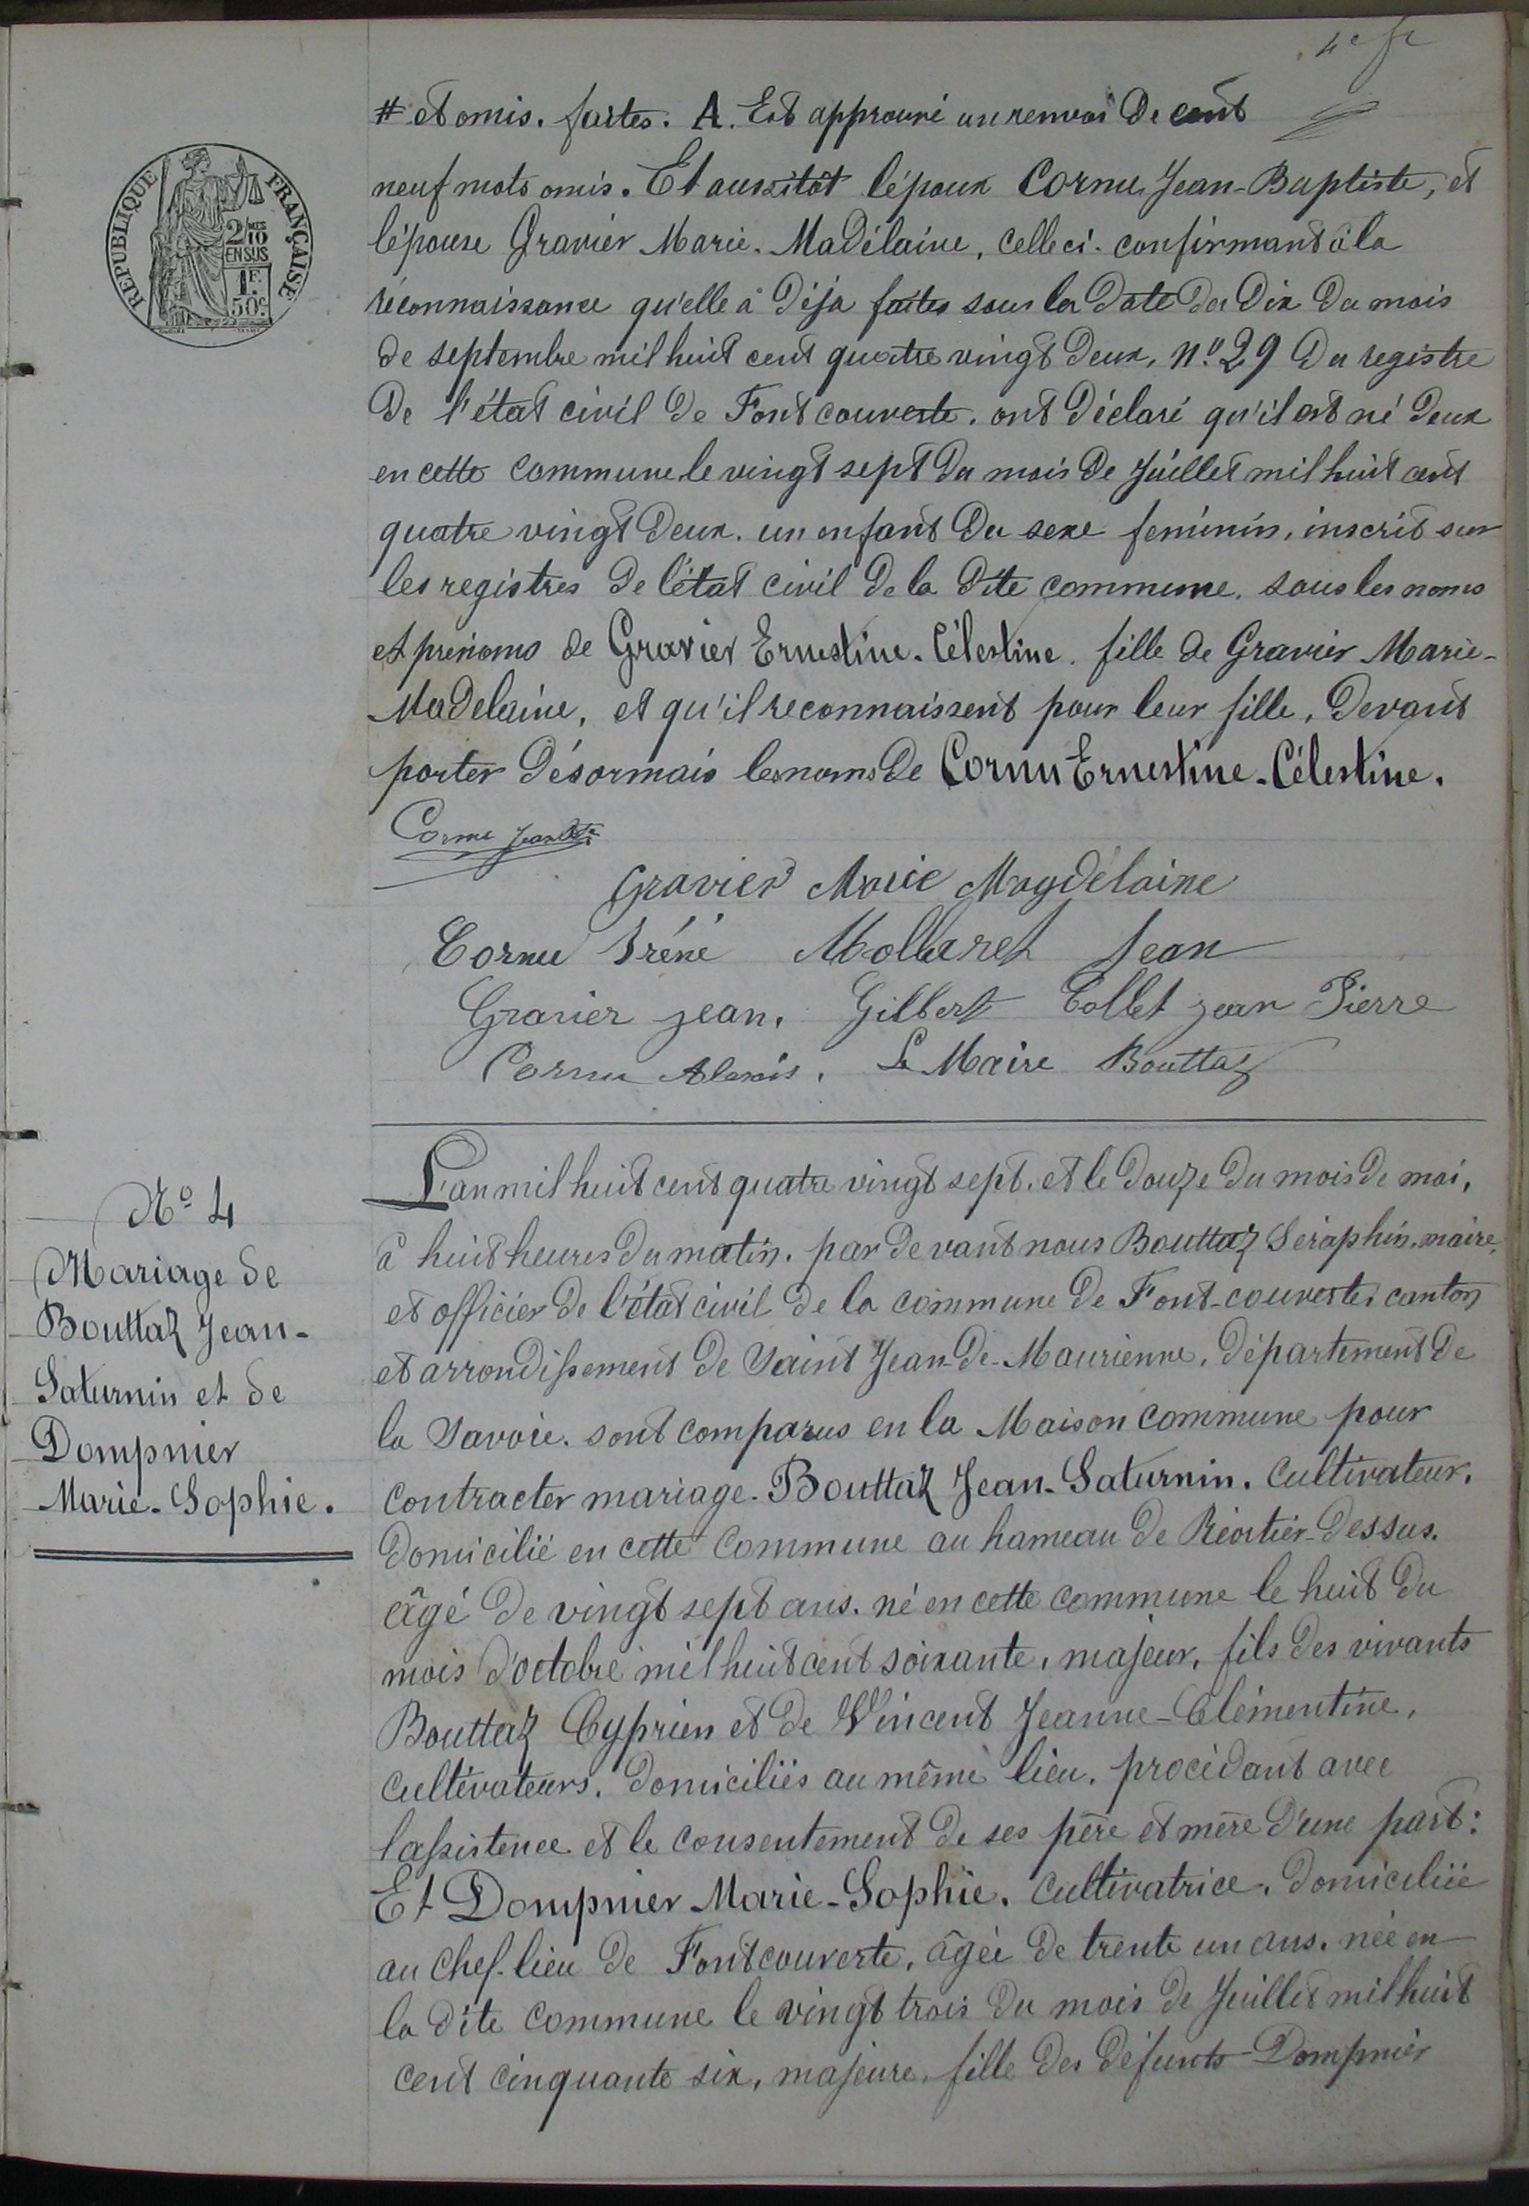 4e
# et omis. faites. A. Est approuvé un renvoi de cent
REPUBLIQUE FRANÇAISE
2/10 EN SUS
1F. 50c.
neuf mots omis. Et aussitôt l'époux Cornu Jean-Baptiste, et
l'épouse Gravier Marie-Madélaine, celle ci confirmant à la
réconnaissance qu'elle à déja faites sous la date du dix du mois
de septembre mil huit cent quatre vingt deux, n° 29 du registre
de l'état civil de Fontcouverte. ont déclaré qu'il est né deux
en cette commune le vingt sept du mois de Juillet mil huit cent
quatre vingt deux. un enfant du sexe feminin, inscrit sur
les registres de l'état civil de la dite commune. sous les noms
et prénoms de Gravier Ernestine-Célestine. fille de Gravier Marie-
Madelaine, et qu'il reconnaissent pour leur fille, devant
porter désormais les noms de Cornu Ernestine-Célestine.
Cornu Jean Bte
Gravier Marie Magdélaine
Cornu Iréné Mollaret Jean
Gravier jean, Gilbert Collet jean Pierre
Cornu Alexis. Le Maire Bouttaz
N° 4
Mariage de
Bouttaz Jean-
Saturnin et de
Dompnier
Marie-Sophie.
L'an mil huit cent quatre vingt sept. et le douze du mois de mai,
à huit heures du matin. par devant nous Bouttaz Séraphin. maire,
et officier de l'état civil de la commune de Font-couverte, canton
et arrondissement de Saint Jean-de-Maurienne, département de
la Savoie. sont comparus en la Maison commune pour
contracter mariage. Bouttaz Jean-Saturnin. cultivateur.
domicilié en cette commune au hameau de Riortier-dessus.
âgé de vingt sept ans. né en cette commune le huit du
mois d'octobre mil huit cent soixante, majeur, fils des vivants
Bouttaz Cyprien et de Vincent Jeanne-Clémentine,
cultivateurs. domiciliés au même lieu. procédant avec
l'assistence et le consentement de ses père et mère d'une part:
Et Dompnier Marie-Sophie. cultivatrice. domiciliée
au chef-lieu de Fontcouverte, âgée de trente un ans. née en
la dite commune le vingt trois du mois de Juillet mil huit
cent cinquante six, majeure, fille des défunts Dompnier